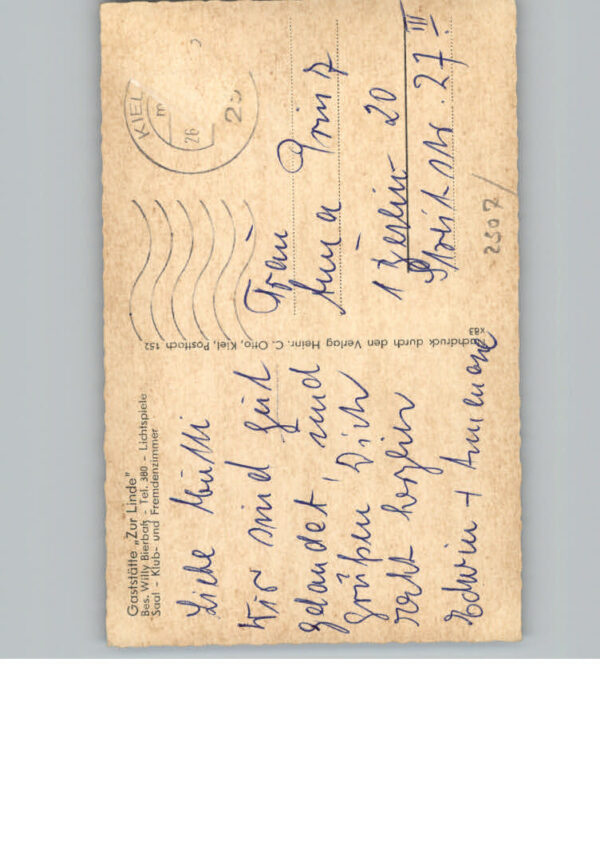 Gaststätte „Zur Linde"
Bes. Willy Bierbaß - Tel. 380 - Lichtspiele
Saal - Klub- und Fremdenzimmer
Liebe Mutti
Wir sind gut
gelandet, und
grüßen Dich
recht herzlich
Edwin + Annemarie
Nachdruck durch den Verlag Heinr. C. Otto, Kiel, Postfach 152
x83
KIEL
26
23
Frau
Anna Prinz
1 Berlin 20
Str. 27 III
2307